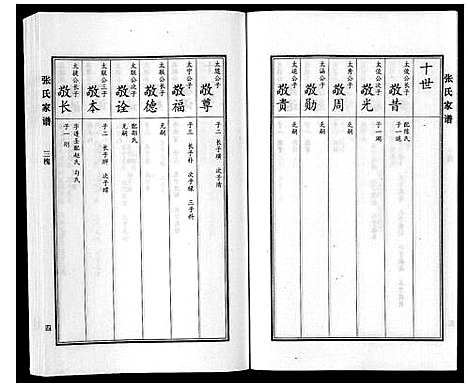 张氏家谱
十世
太俊公长子
敬昔
配陈氏
子一
太俊公次子
敬光
子一
太秀公子
敬周
无嗣
太涵公子
敬勋
无嗣
太运公子
敬贵
无嗣
敬尊
子二 长子 次子清
太宁公子
敬福
子三 长子朴 次子 三子科
太联公长子
敬德
无嗣
太联公次子
敬诠
配胡氏
无嗣
太联公三子
敬本
子二 长子 次子
太捷公长子
敬长
配赵氏
子一
张氏家谱
三槐
四